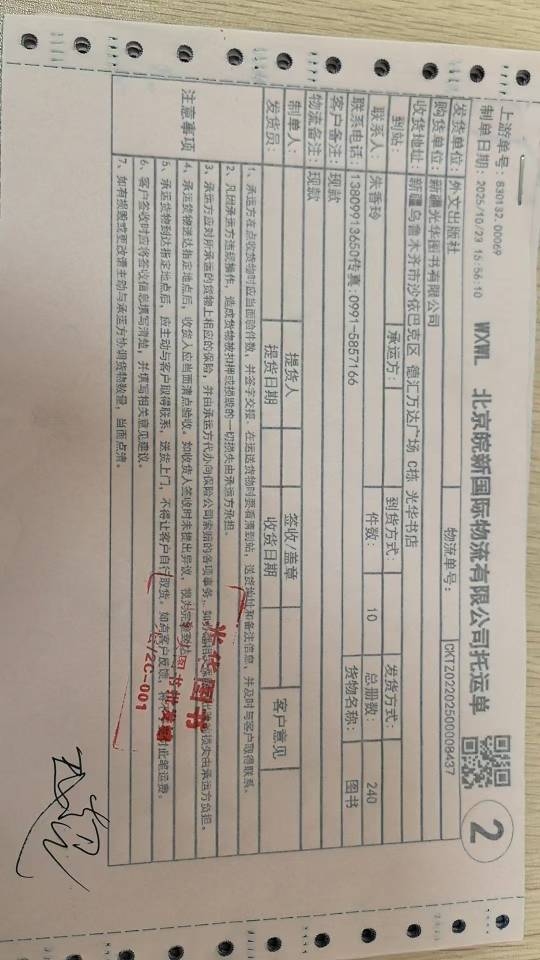 上游单号：830132, 00069
制单日期：2025/10/23 15:56:10
WXWL 北京皖新国际物流有限公司托运单
2
发货单位：外文出版社
物流单号：
CKT2022025000008437
购货单位：新疆光华图书有限公司
收货地址：新疆乌鲁木齐市沙依巴克区 德汇万达广场 C栋 光华书店
到站： 承运方： 到货方式： 发货方式：
联系人： 朱香玲 件数： 10 总册数： 240
联系电话：13809913650传真:0991-5857166 货物名称： 图书
客户备注：现款
物流备注：现款
制单人： 提货人 签收/盖章 客户意见
发货员： 提货日期 收货日期
注意事项
1、承运方在点收货物时应当面验件数，并签字交接。在运送货物时要看清到站，送货地址和备注信息，并及时与客户取得联系。
2、凡因承运方违规操作，造成货物被扣押或损毁的一切损失由承运方承担。
3、承运方应对所承运的货物上相应的保险，并由承运方代办向保险公司索赔的各项事务。损失由承运方负担。
4、承运货物送达指定地点后，收货人应当面清点验收。如收货人签收时未提出异议，视为完
5、承运货物到达指定地点后，应主动与客户取得联系，送货上门，不得让客户自行取货。如有客户反馈，此笔运费。
6、客户签收时应将签收信息填写清楚，并填写相关意见建议。
7、如有损毁或更改请主动与承运方协调货物数量，当面点清。
光华图书
图书批发
2C-001